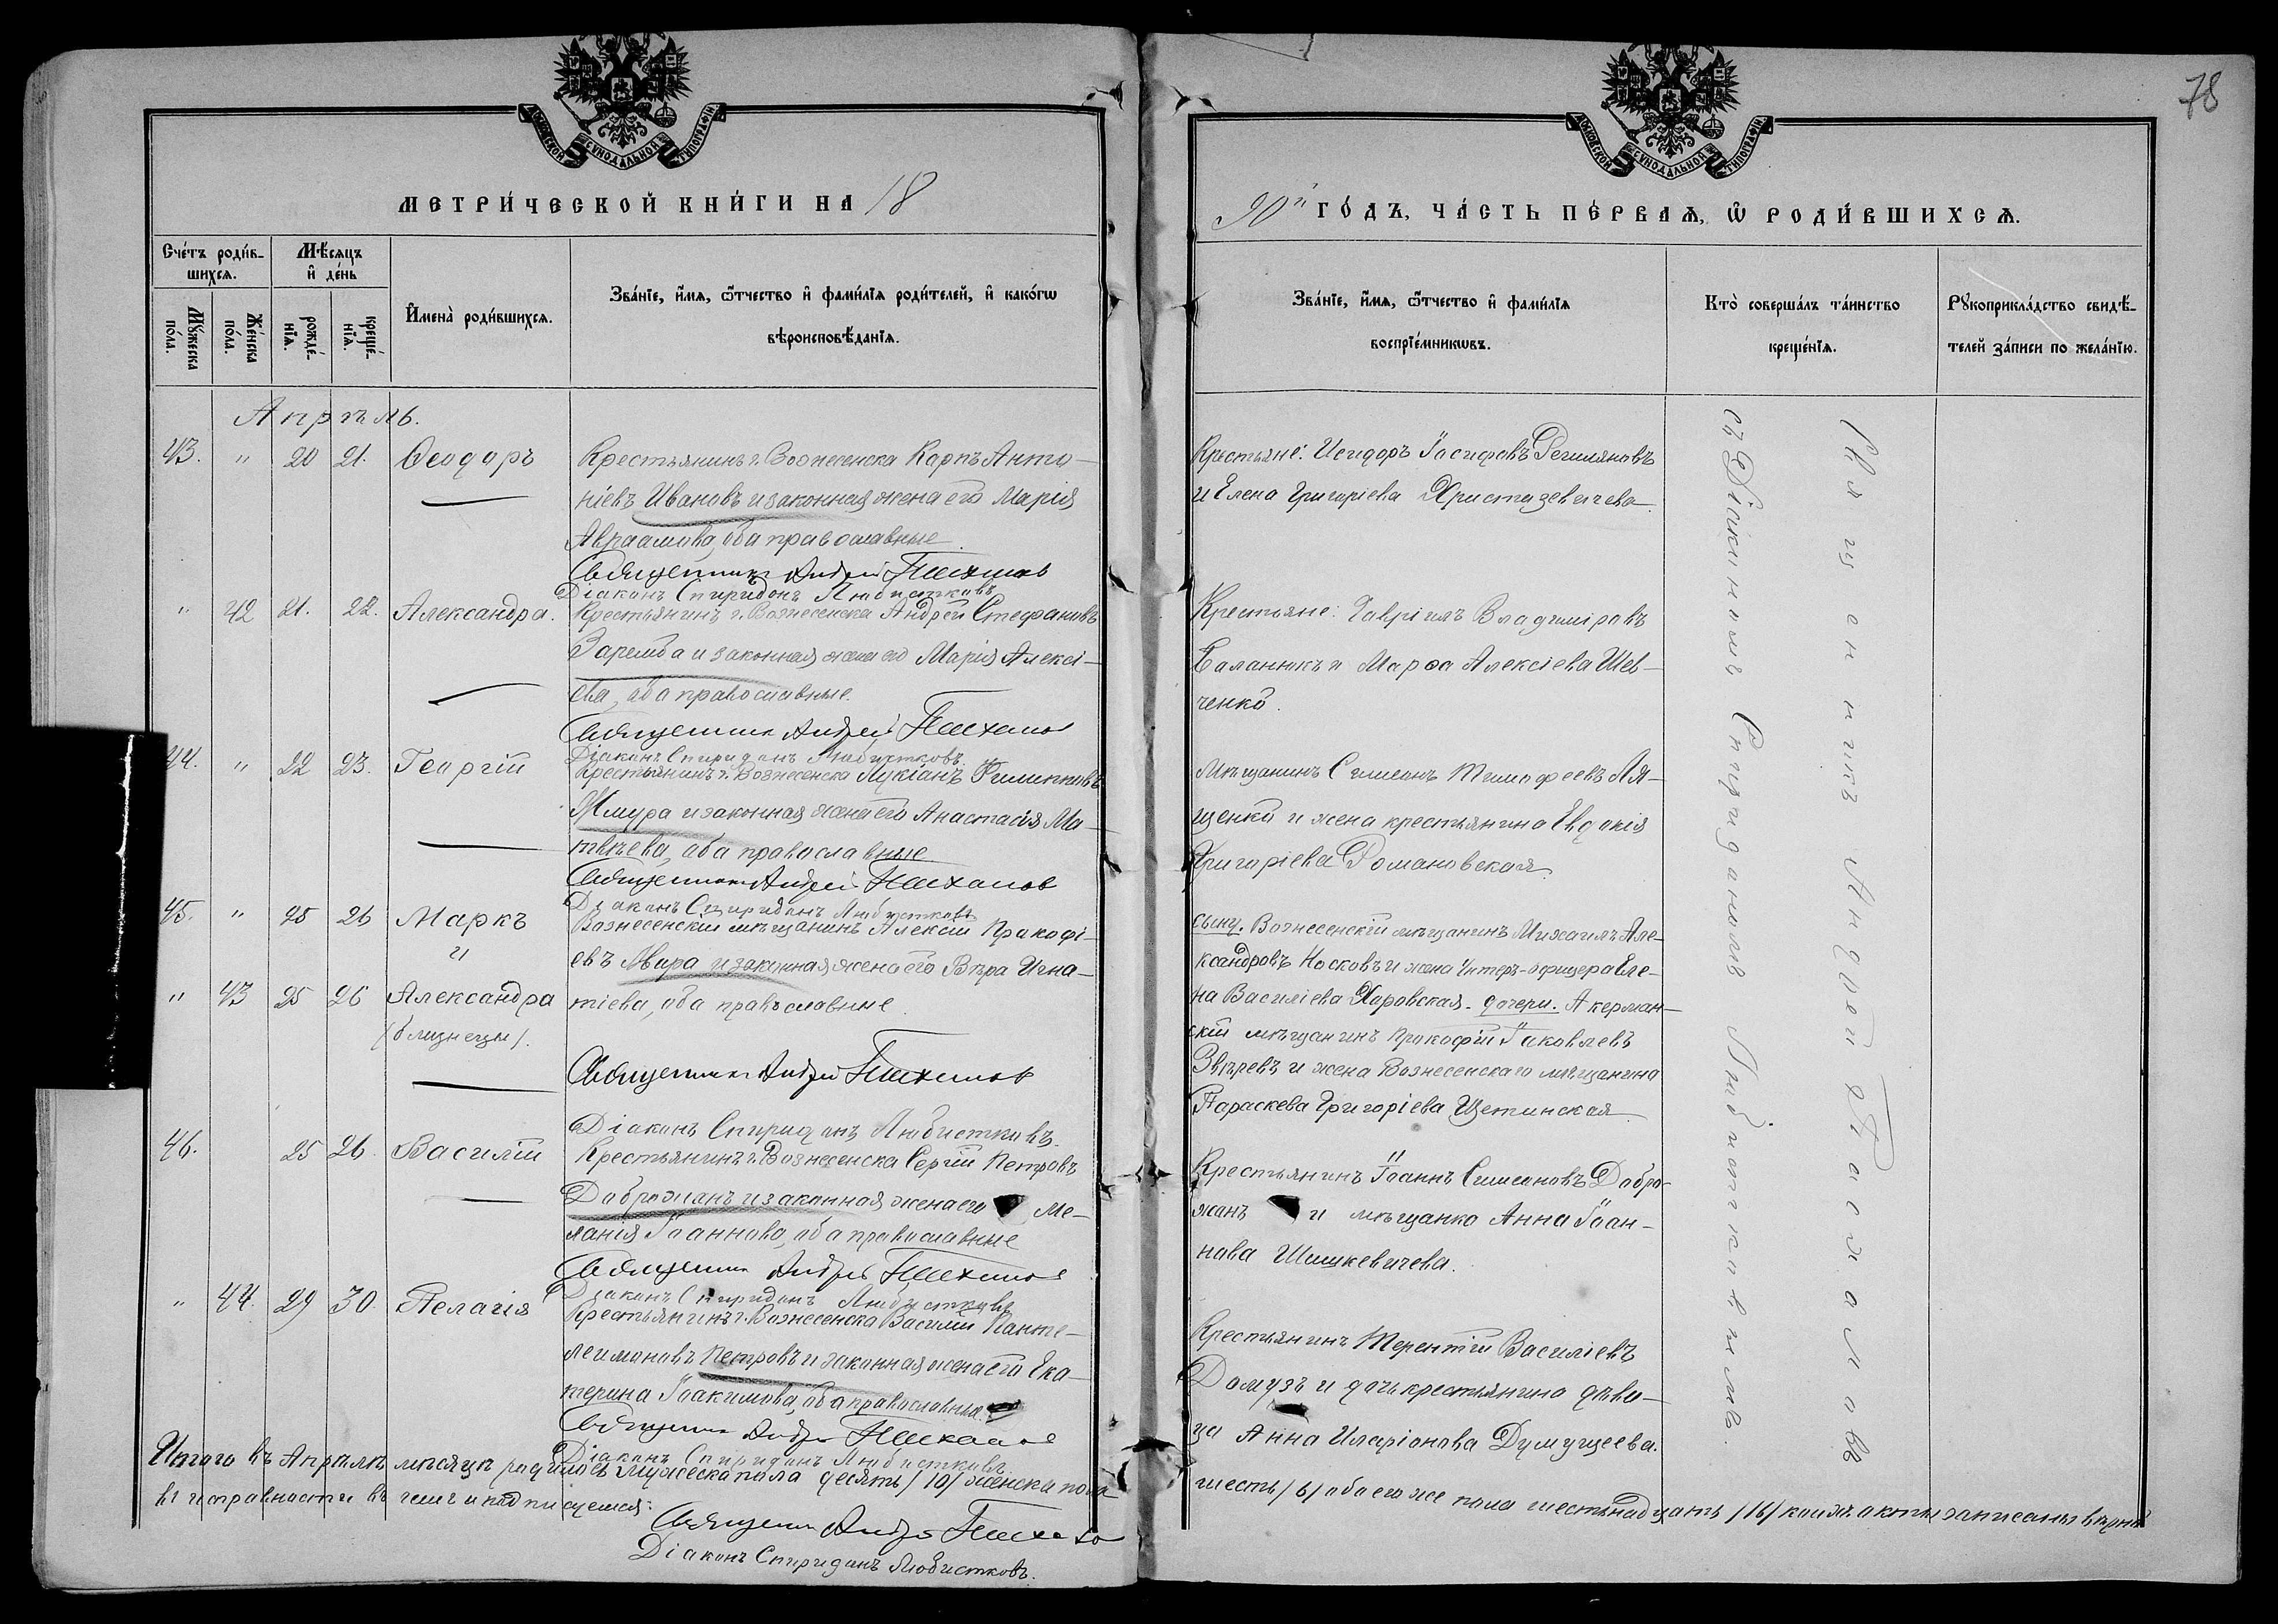 78
МОСКОВСКОЙ СѴНОДАЛЬНОЙ ТИПОГРАФІИ
МОСКОВСКОЙ СѴНОДАЛЬНОЙ ТИПОГРАФІИ
МЕТРИ́ЧЕСКОЙ КНИ́ГИ НА 18
90й ГО́ДЪ, ЧА́СТЬ ПЕ́РВАѦ, Ѿ РОДИ́ВШИХСѦ.
Сче́тъ роди́в-
шихсѧ.
Мꙋ́жеска по́ла.
Же́нска по́ла.
Мѣ́сѧцъ
и҆ де́нь
рожде́-
нїѧ.
креще́-
нїѧ.
И҆мена̀ роди́вшихсѧ.
Зва́нїе, и҆́мѧ, ѻ҆́тчество и҆ фами́лїѧ роди́телей, и҆ како́гѡ
вѣроисповѣ́данїѧ.
Зва́нїе, и҆́мѧ, ѻ҆́тчество и҆ фами́лїѧ
воспрїе́мникѡвъ.
Кто̀ соверша́лъ та́инство
креще́нїѧ.
Рꙋкоприкла́дство свидѣ́-
телей за́писи по жела́нїю.
Апрѣль.
43. " 20 21. Ѳеодоръ
Крестьянинъ г. Вознесенска Карпъ Анто-
ніевъ Ивановъ и законная жена его Марія
Авраамова, оба православные
Священникъ Андрей
Діаконъ Спиридонъ Любистковъ
Крестьяне: Исидоръ Іосифовъ
и Елена Григоріева
" 42 21. 22. Александра.
Крестьянинъ г. Вознесенска Андрей Стефановъ
Заремба и законная жена его Марія Алексі-
ева, оба православные.
Священникъ Андрей
Діаконъ Спиридонъ Любистковъ.
Крестьяне: Гавріилъ Владиміровъ
Баланюкъ и Марѳа Алексіева Шев-
ченко.
44. " 22 23. Георгій
Крестьянинъ г. Вознесенска Лукіанъ Филипповъ
Жмура и законная жена его Анастасія Ма-
твѣева, оба православные
Священникъ Андрей
Діаконъ Спиридонъ Любистковъ
Мѣщанинъ Симеонъ Тимофеевъ Ля-
щенко и жена крестьянина Евдокія
Григоріева Романовская.
45. " 25 26 Маркъ
и
" 43 25 26 Александра
/близнецы/.
Вознесенскій мѣщанинъ Алексій Прокофі-
евъ и законная жена его Вѣра Игна-
тіева, оба православные.
Священникъ Андрей
Діаконъ Спиридонъ Любистковъ.
сыну. Вознесенскій мѣщанинъ Михаилъ Але-
ксандровъ Носковъ и жена Унтеръ-офицера Еле-
на Василіева Харовская. дочери. Аккерман-
скій мѣщанинъ Прокофій Іаковлевъ
Звѣревъ и жена Вознесенскаго мѣщанина
Параскева Григоріева Щетинская
46. 25 26. Василій
Крестьянинъ г. Вознесенска Сергій Петровъ
Доброжанъ и законная жена его Ме-
ланія Іоаннова, оба православные
Священникъ Андрей
Діаконъ Спиридонъ Любистковъ
Крестьянинъ Іоаннъ Симеоновъ Добро-
жанъ и мѣщанка Анна Іоан-
нова Шишкевичева.
" 44. 29 30. Пелагія
Крестьянинъ г. Вознесенска Василій Панте-
леимоновъ Петровъ и законная жена его Ека-
терина Іоакимова, оба православные.
Священникъ Андрей
Діаконъ Спиридонъ Любистковъ
Крестьянинъ Терентій Василіевъ
Домузъ и дочь крестьянина дѣви-
ца Анна Иларіонова Думущеева.
Священникъ Андрей
съ Діакономъ Спиридономъ Любистковымъ.
Итого въ Апрѣлѣ мѣсяцѣ родилось мужеска пола десять /10/ женска пола
шесть /6/ обоего же пола шестьнадцать /16/ коихъ акты записаны вѣрны
въ исправности въ чемъ и подписуемся:
Священникъ Андрей
Діаконъ Спиридонъ Любистковъ.